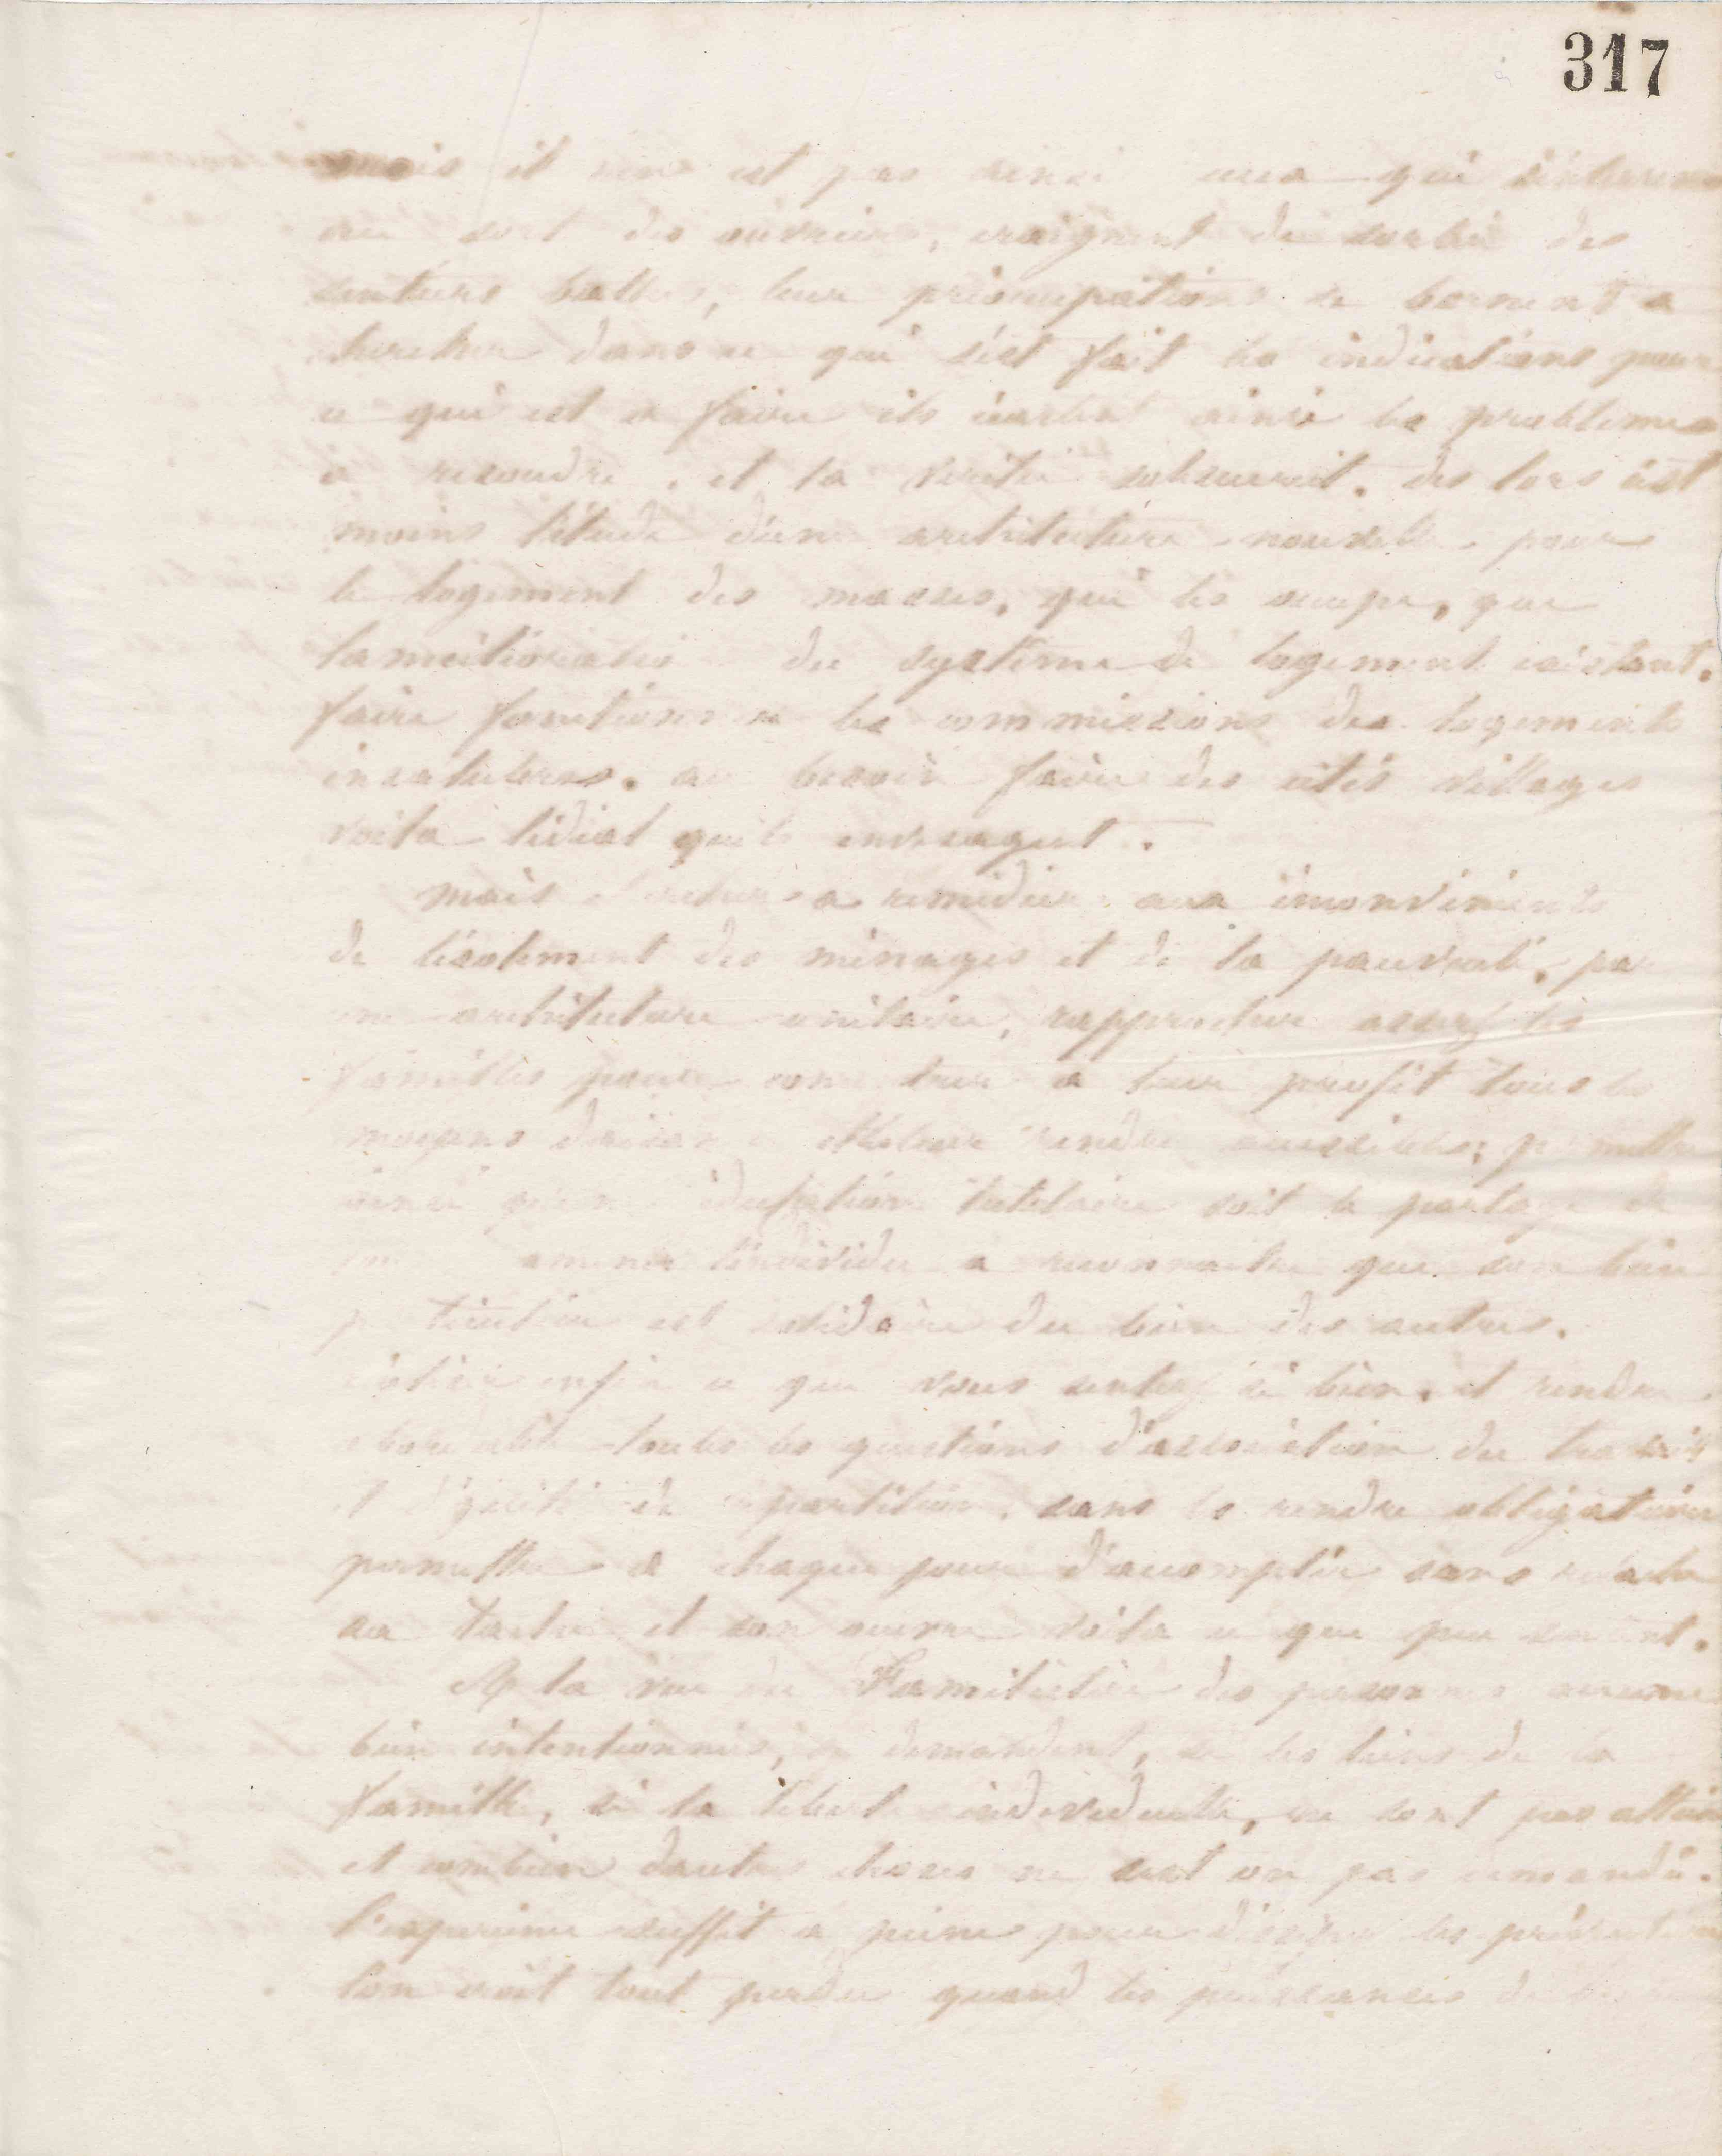 317
mais il n'en est pas ainsi ceux qui s'intéressent
au sort des ouvriers, craignent de sortir des
sentiers battus, leur préoccupations se bornent a
chercher dans ce qui s'est fait les indications pour
ce qui est a faire ils écartent ainsi les problemes
a resoudre, et la verité s'obscurcit. des lors c'est
moins l'étude d'une architecture nouvelle pour
le logement des masses, qui les occupe, que
lamélioration du systeme de logement existant.
faire fonctionner les commissions des logements
insalubres. au besoin faire des cités villages
voila lidéal quils envisagent.
mais chercher a remédier aux inconvénients
de lisolement des ménages et de la pauvreté, par
une architecture unitaire, rapprocher assez les
familles pour concentrer a leur profit tous les
moyens et leur rendre accessibles; permettre
ainsi qu'une éducation tutélaire soit le partage de
amener l'individu a reconnaitre que son bien
particulier est solidaire du bien des autres.
enfin ce que vous sentez si bien, et rendre
abordable toutes les questions d'association du travail
et d'équité de répartition, sans les rendre obligatoires
permettre a chaque jour d'accomplir sans
sa tache et son œuvre voila ce que peu savent.
A la vue du Familistère des personnes
bien intentionnées, se demandent, si les liens de la
famille, si la liberté individuelle, ne sont pas
et combien dautres choses ne sest on pas demandé.
l'expérience suffit a peine pour dissiper les
l'on croit tout perdu quand les puissances de